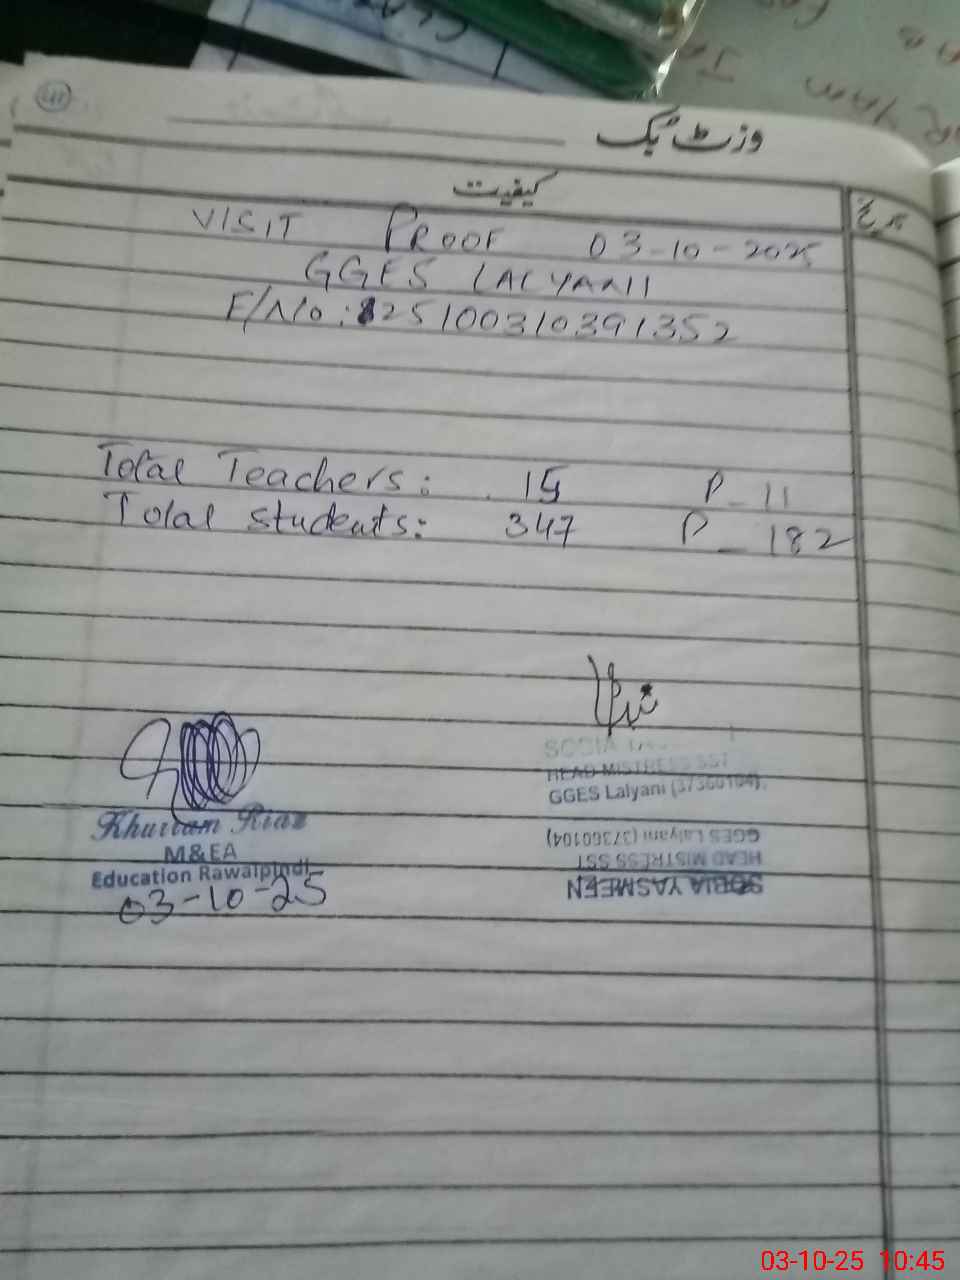 وزٹ بک
کیفیت
تاریخ
VISIT PROOF 03-10-2025
GGES LALYANI
F/No: 25100310391352
Total Teachers: 15 P_11
Total students: 347 P_182
SOBIA
HEAD MISTRESS SST
GGES Lalyani (37360104)
Khurram Riaz
M&EA
Education Rawalpindi
03-10-25
GGES Lalyani (37360104)
HEAD MISTRESS SST
SOBIA YASMEEN
03-10-25 10:45